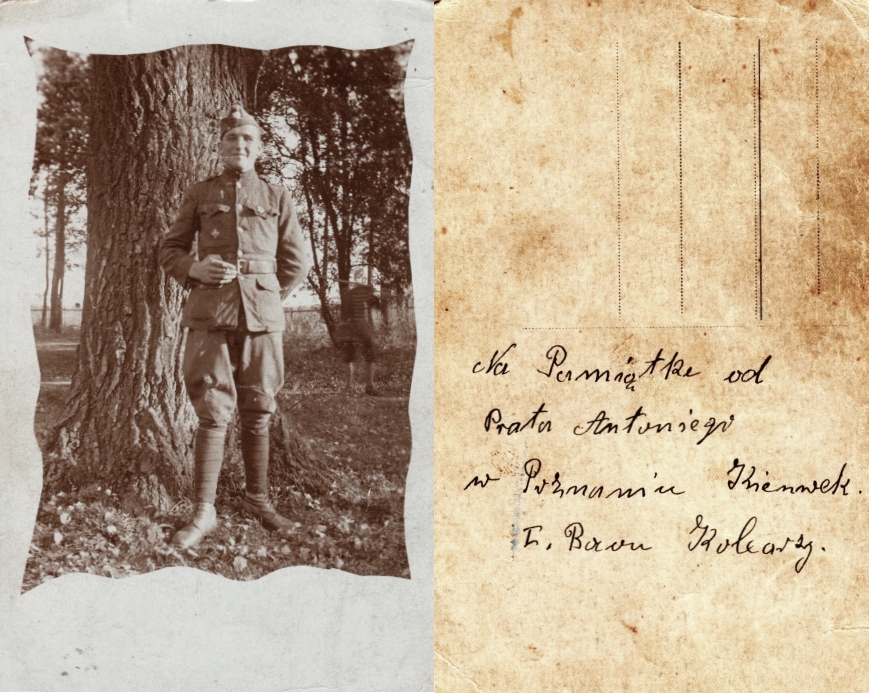 Na Pamiątkę od
Brata Antoniego
w Poznaniu Kienwek.
I. Baon Kolearzy.